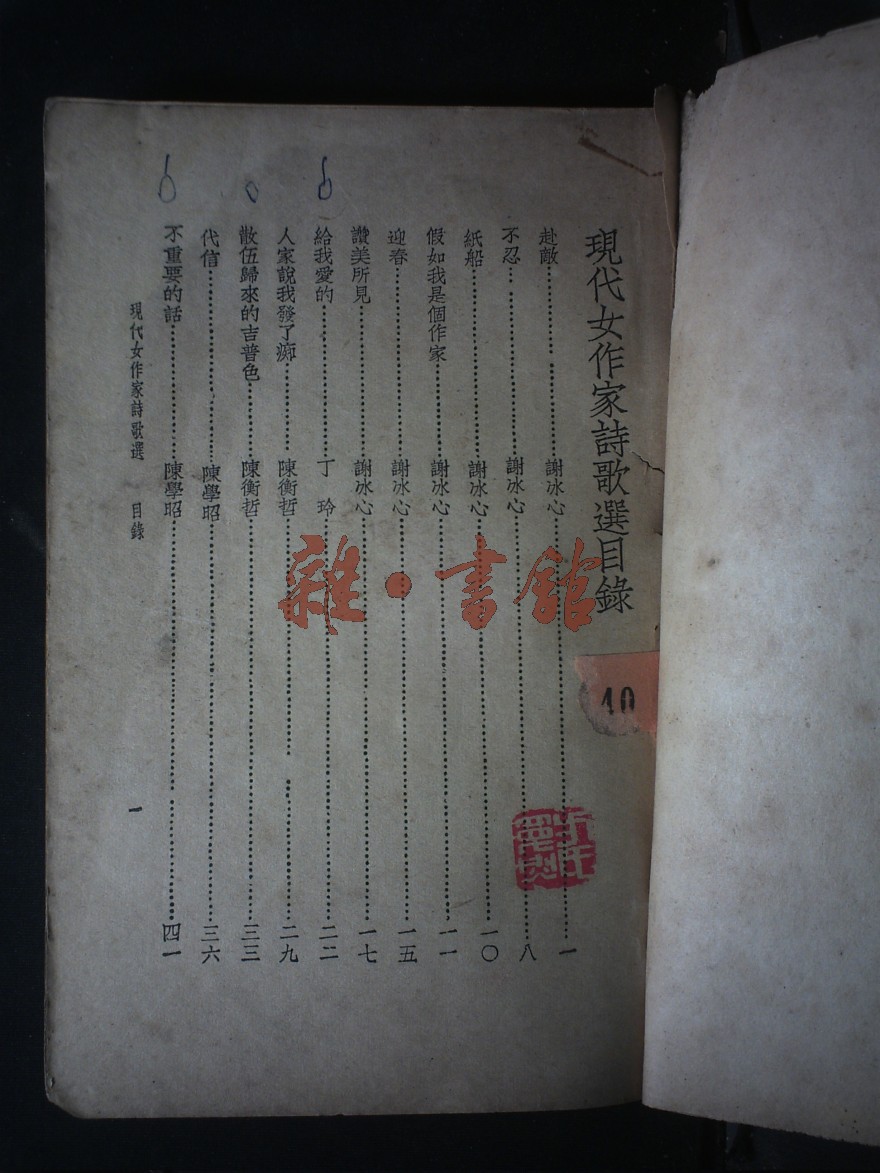 現代女作家詩歌選目錄
赴敵 謝冰心 一
不忍 謝冰心 八
紙船 謝冰心 一〇
假如我是個作家 謝冰心 一一
迎春 謝冰心 一五
讚美所見 謝冰心 一七
給我愛的 丁玲 二二
人家說我發了痴 陳衡哲 二九
散伍歸來的吉普色 陳衡哲 三三
代信 陳學昭 三六
不重要的話 陳學昭 四一
現代女作家詩歌選 目錄 一
雜·書館
40